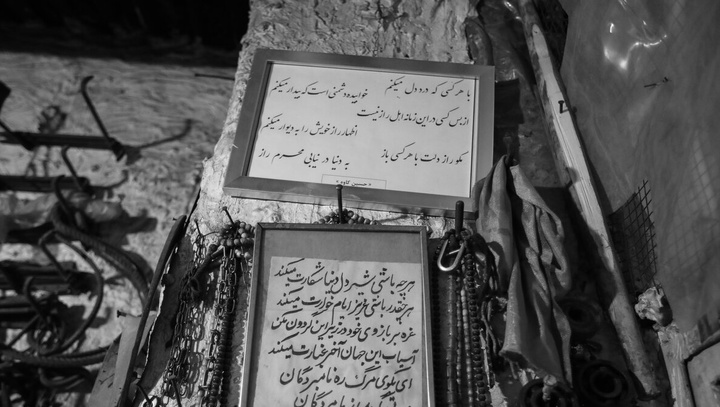 با هر کسی که درد دل میکنم
خوابیده دشمنی است که بیدار میکنم
از بس کسی در این زمانه اهل راز نیست
اظهار راز خویش را به دیوار میکنم
مگو راز دلت با هر کسی باز
به دنیا در نیابی محرم راز
هر چه باشی شیر دل دنیا شکارت میکند
هر چقدر باشی عزیز ایام خوارت میکند
غره سر بازوی خود در این گردون مکن
آسیاب این جهان آخر غبارت میکند
ای پلوی مرگ ده نامردگان